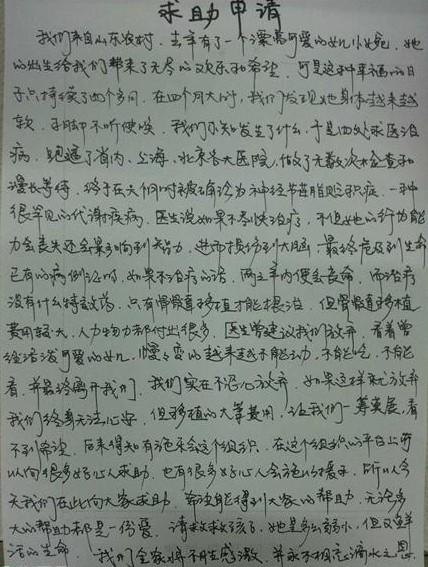 求助申请
我们来自山东农村，去年有了一个漂亮可爱的女儿小婉，她
的出生给我们带来了无尽的欢乐和希望，可是这种幸福的日
子只持续了四个多月，在四个月大时，我们发现她身体越来越
软，手脚不听使唤，我们不知发生了什么，于是四处求医治
病，跑遍了省内、上海、北京各大医院，做了无数次检查和
漫长等待，终于在天们时被确诊为神经节苷脂贮积症，一种
很罕见的代谢疾病，医生说如果不尽快治疗，不但她的行为能
力会丧失还会影响到智力，进而损伤到大脑，最终危及到生命
已有的病例证明，如果不治疗的话，两三年内便会丧命，而治疗
没有什么特效药，只有骨髓移植才能根治，但骨髓移植
费用较大，人力物力都付出很多，医生曾建议我们放弃，看着曾
经活泼可爱的女儿，慢慢变的越来越不能动，不能吃，不能
看，并最终离开我们，我们实在不忍心放弃，如果这样就放弃
我们终身无法心安，但移植的大笔费用，让我们一筹莫展，看
不到希望，后来得知有施乐会这个组织，在这个组织的平台上可
以向很多好心人求助，也有很多好心人会施以援手，所以今
天我们在此向大家求助，希望能得到大家的帮助，无论多
大的帮助都是一份爱，请救救孩子，她是多么弱小，但又鲜
活的生命，我们全家将不胜感激，并永不相忘滴水之恩